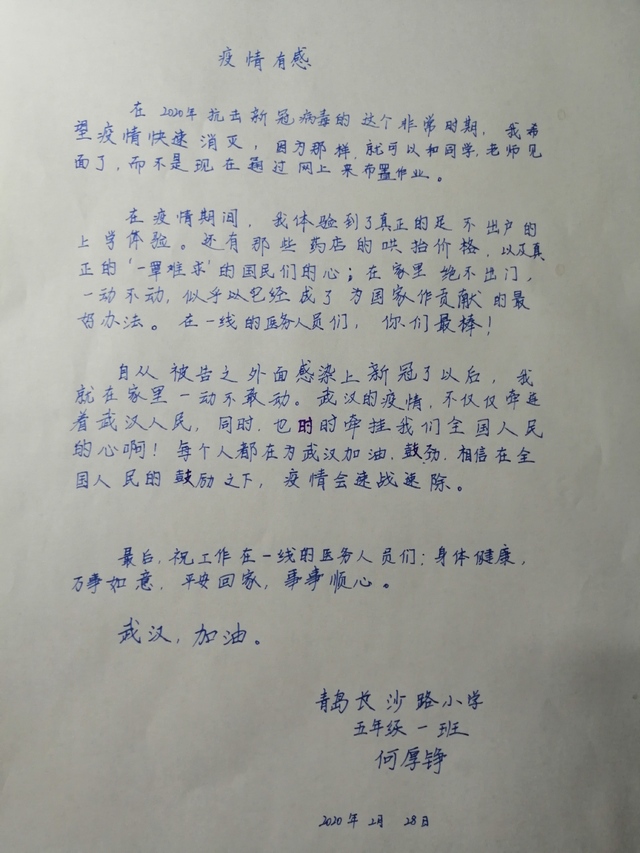 疫情有感
在2020年抗击新冠病毒的这个非常时期，我希
望疫情快速消灭，因为那样，就可以和同学，老师见
面了，而不是现在通过网上来布置作业。
在疫情期间，我体验到了真正的足不出户的
上学体验。还有那些药店的哄抬价格，以及真
正的‘一罩难求’的国民们的心；在家里绝不出门，
一动不动，似乎以已经成了为国家作贡献的最
好办法。在一线的医务人员们，你们最棒！
自从被告之外面感染上新冠了以后，我
就在家里一动不敢动。武汉的疫情，不仅仅牵连
着武汉人民，同时，也时时牵挂我们全国人民
的心啊！每个人都在为武汉加油、鼓劲，相信在全
国人民的鼓励之下，疫情会速战速除。
最后，祝工作在一线的医务人员们：身体健康，
万事如意，平安回家，事事顺心。
武汉，加油。
青岛长沙路小学
五年级一班
何厚铮
2020年2月28日